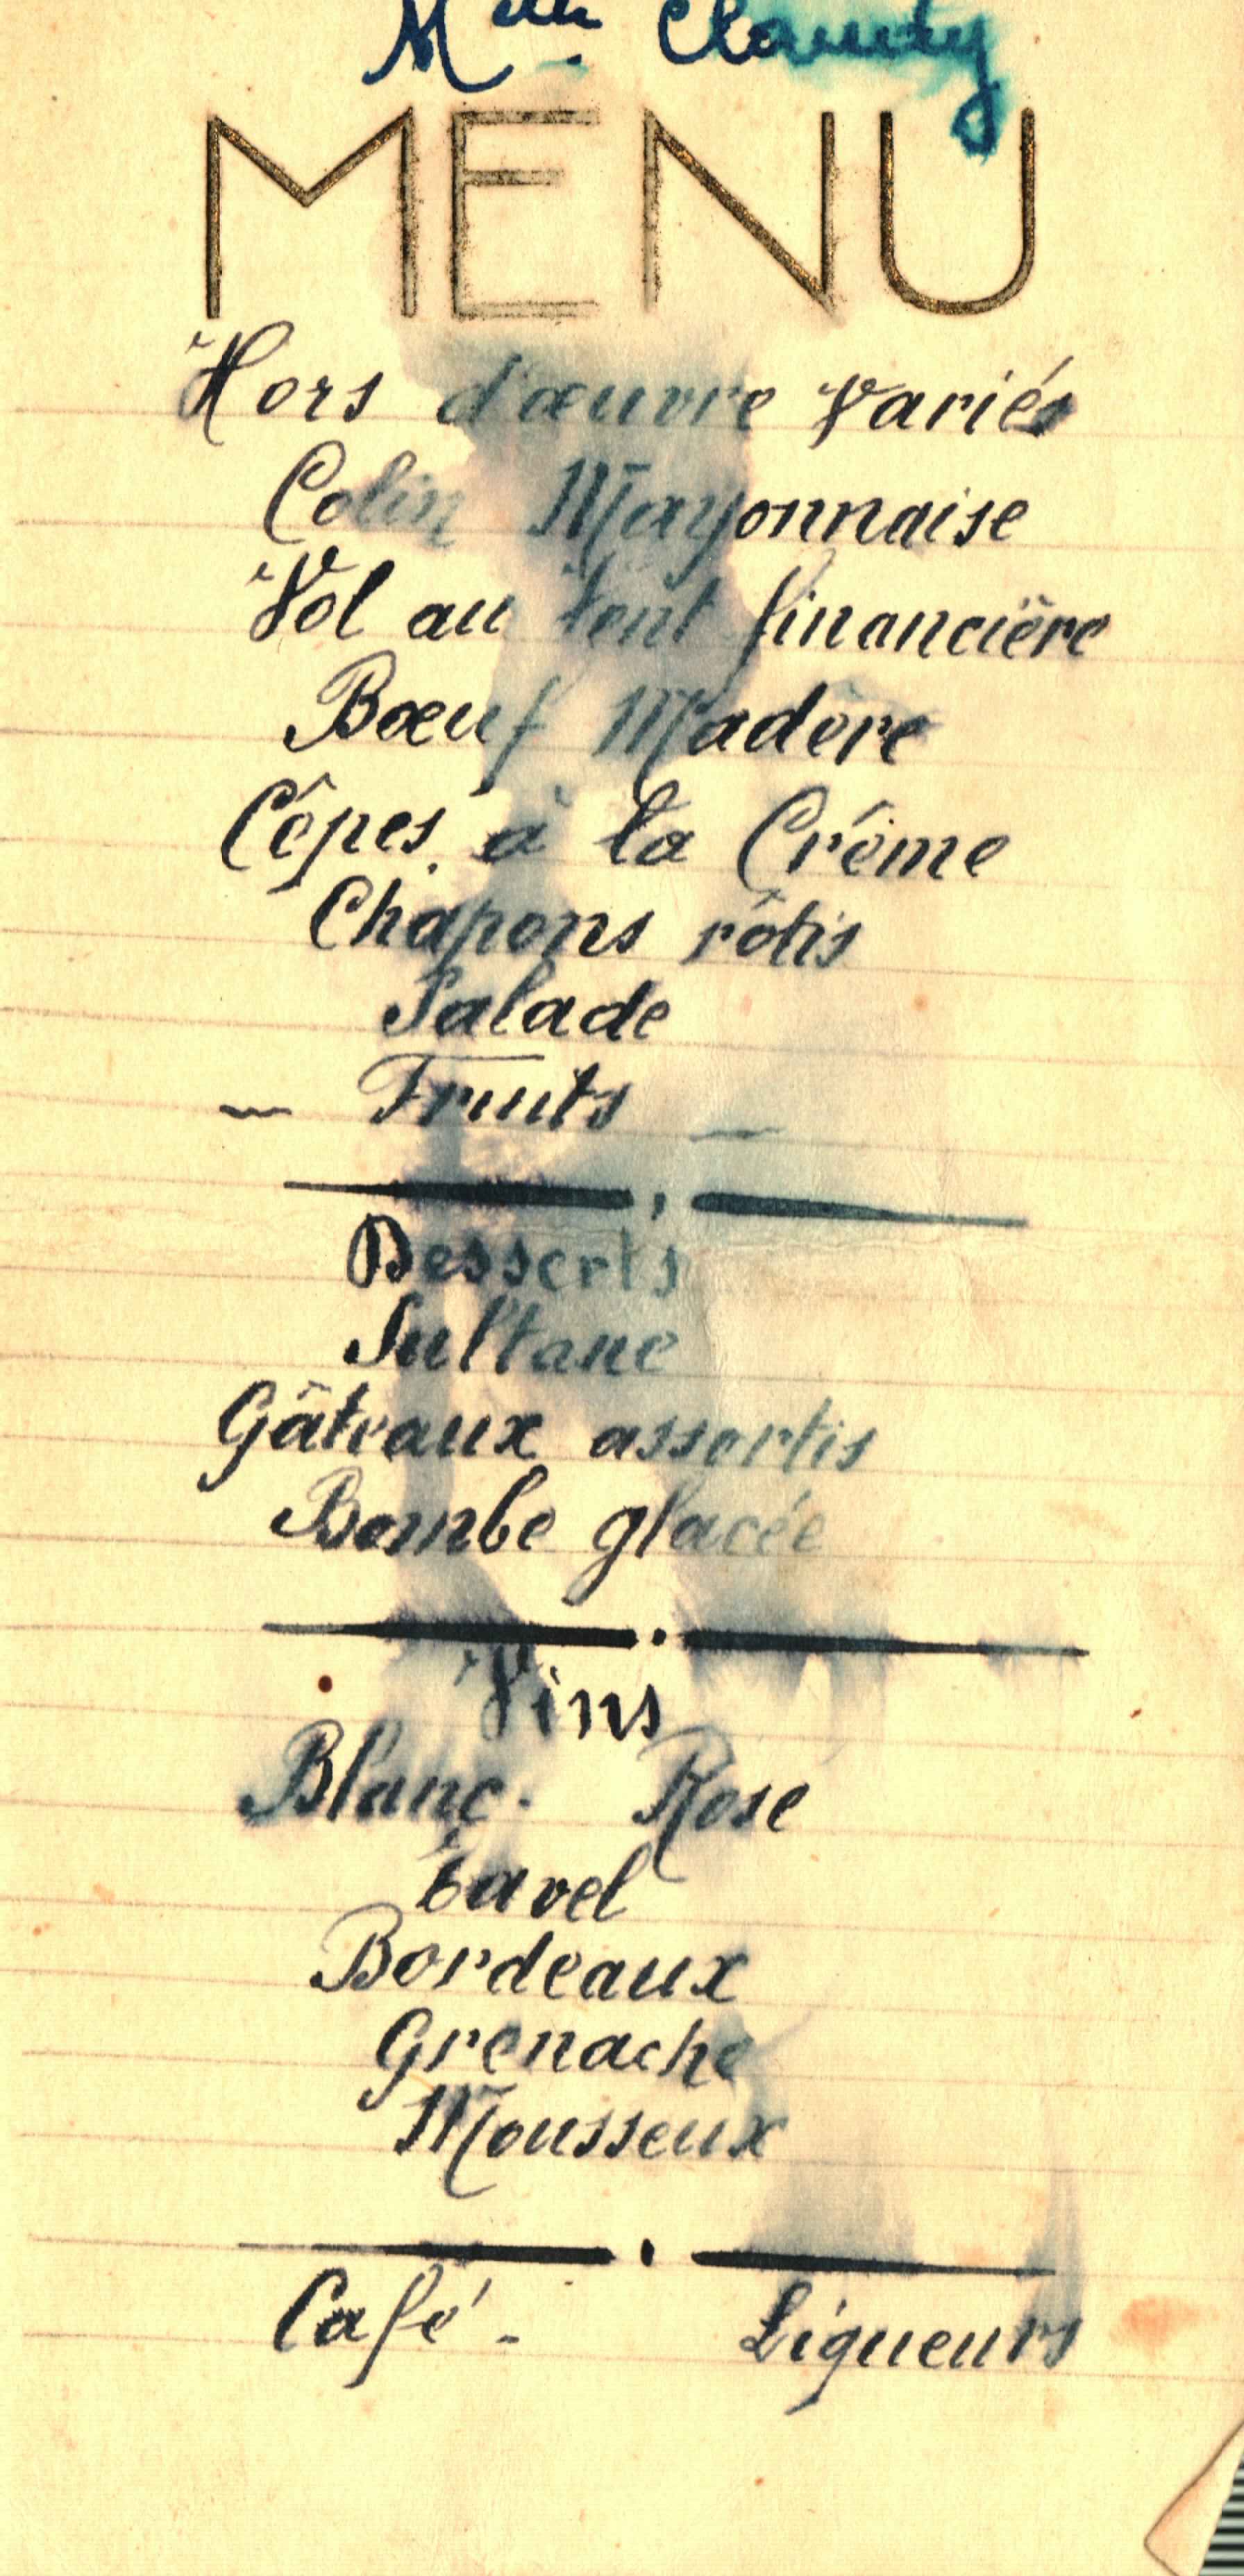 Melle Claudy
MENU
Hors d'œuvre variés
Colin Mayonnaise
Vol au Vent financière
Bœuf Madère
Cêpes à la Crême
Chapons rôtis
Salade
Fruits
Desserts
Sultane
Gâteaux assortis
Bombe glacée
Vins
Blanc. Rosé
Tavel
Bordeaux
Grenache
Mousseux
Café - Liqueurs